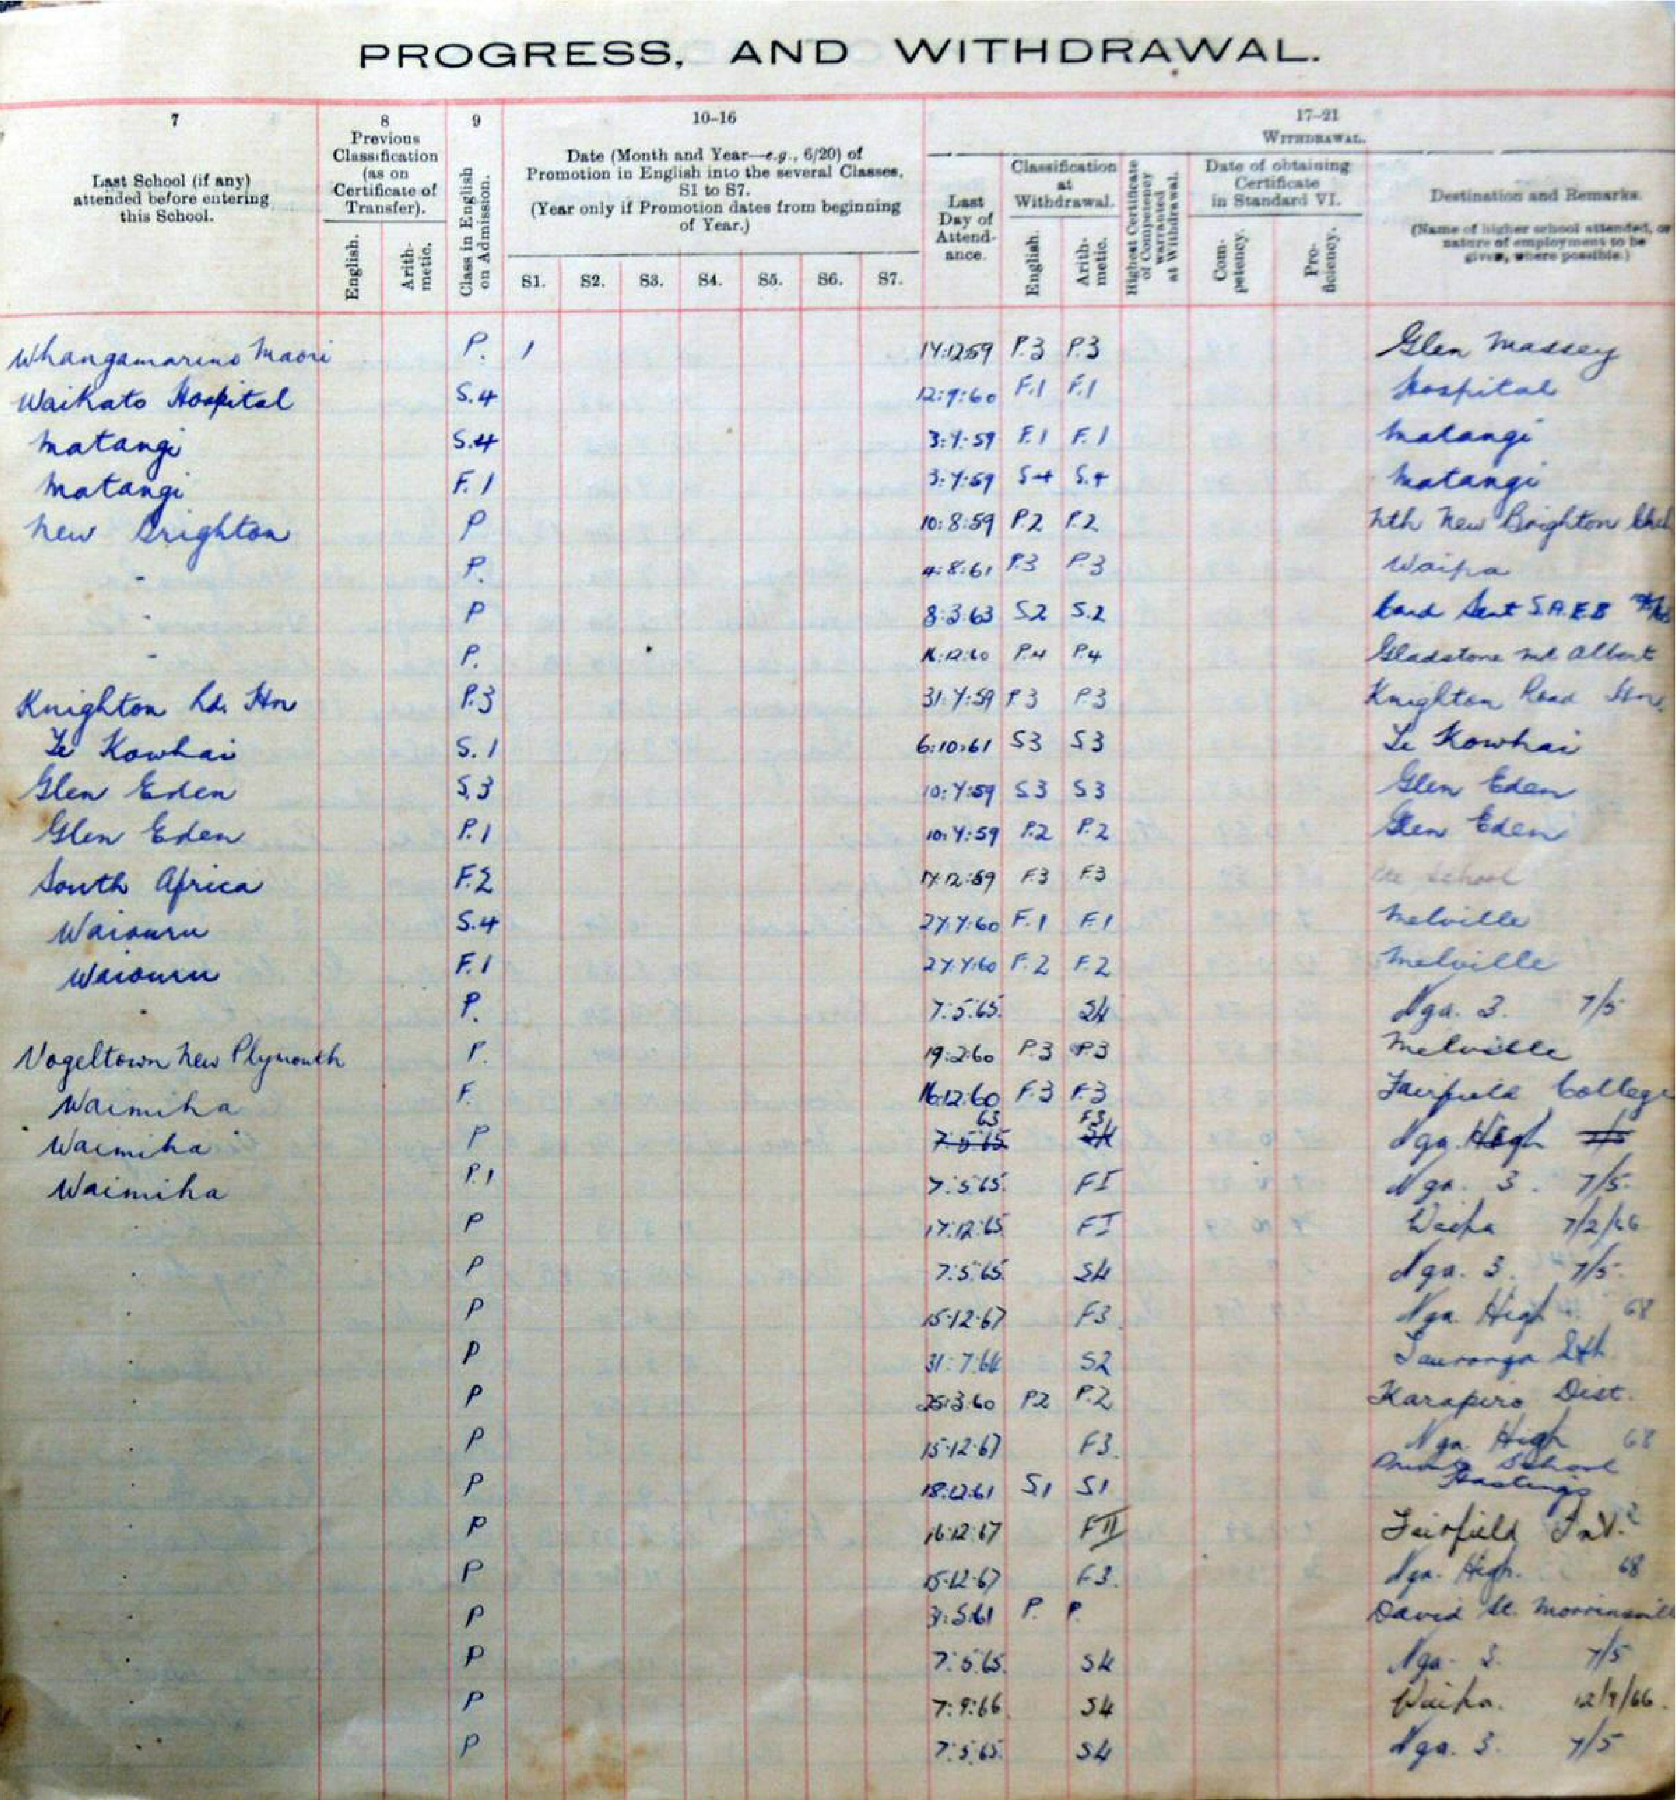 PROGRESS, AND WITHDRAWAL.
7 8 9 10-16 17-21
Last School (if any) attended before entering this School.
Previous Classification (as on Certificate of Transfer).
English.
Arith-metic.
Class in English on Admission.
Date (Month and Year—e.g., 6/20) of Promotion in English into the several Classes, S1 to S7.
(Year only if Promotion dates from beginning of Year.)
S1. S2. S3. S4. S5. S6. S7.
WITHDRAWAL.
Last Day of Attend-ance.
Classification at Withdrawal.
English.
Arith-metic.
Highest Certificate of Competency warranted at Withdrawal.
Date of obtaining Certificate in Standard VI.
Com-petency.
Pro-ficiency.
Destination and Remarks.
(Name of higher school attended, or nature of employment to be given, where possible.)
Whangamarino Maori P. 1 17:12:59 P.3 P.3 Glen Massey
Waikato Hospital S.4 12:9:60 F.1 F.1 Hospital
Matangi S.4 3:7:59 F.1 F.1 Matangi
Matangi F.1 3:7:59 S4 S.4 Matangi
New Brighton P 10:8:59 P.2 P.2 Nth New Brighton
P. 4:8:61 P.3 P.3 Waipa
P 8:3:63 S2 S.2 Card Sent S.A.E.B
P. 16:12:60 P.4 P.4 Gladstone Mt Albert
Knighton Rd. Hn P.3 31:7:59 P3 P.3 Knighton Road Hn.
Te Kowhai S.1 6:10:61 S3 S3 Te Kowhai
Glen Eden S.3 10:7:59 S3 S3 Glen Eden
Glen Eden P.1 10:7:59 P.2 P.2 Glen Eden
South Africa F.2 17:12:59 F.3 F.3 School
Waiouru S.4 27:7:60 F.1 F.1 Melville
Waiouru F.1 27:7:60 F.2 F.2 Melville
P. 7:5:65. S4 Nga. 3. 7/5
Vogeltown New Plymouth P. 19:2:60 P.3 P3 Melville
Waimiha F. 16:12:60 F.3 F.3 Fairfield College
63 F3
Waimiha P 7:5:65 S4 Nga. High 7/5
Waimiha P.1 7:5:65. FI Nga. 3. 7/5.
P 17:12:65 FI Waipa 7/2/66
P 7:5:65. S4 Nga. 3. 7/5.
P 15:12:67 F3. Nga. High 68
P 31:7:64 S2 Tauranga Sth.
P 25:3:60 P2 P.2 Karapiro Dist.
P 15:12:67 F3. Nga. High 68
School
P 18:12:61 S1 S1 Hastings
P 16:12:67 FII Fairfield Int.
P 15:12:67 F3. Nga. High. 68
P 31:5:61 P. P. David St. Morrinsville
P 7:5:65. S4 Nga. 3. 7/5
P 7:9:66 S4 Waipa. 12/9/66.
P 7:5:65. S4 Nga. 3. 7/5